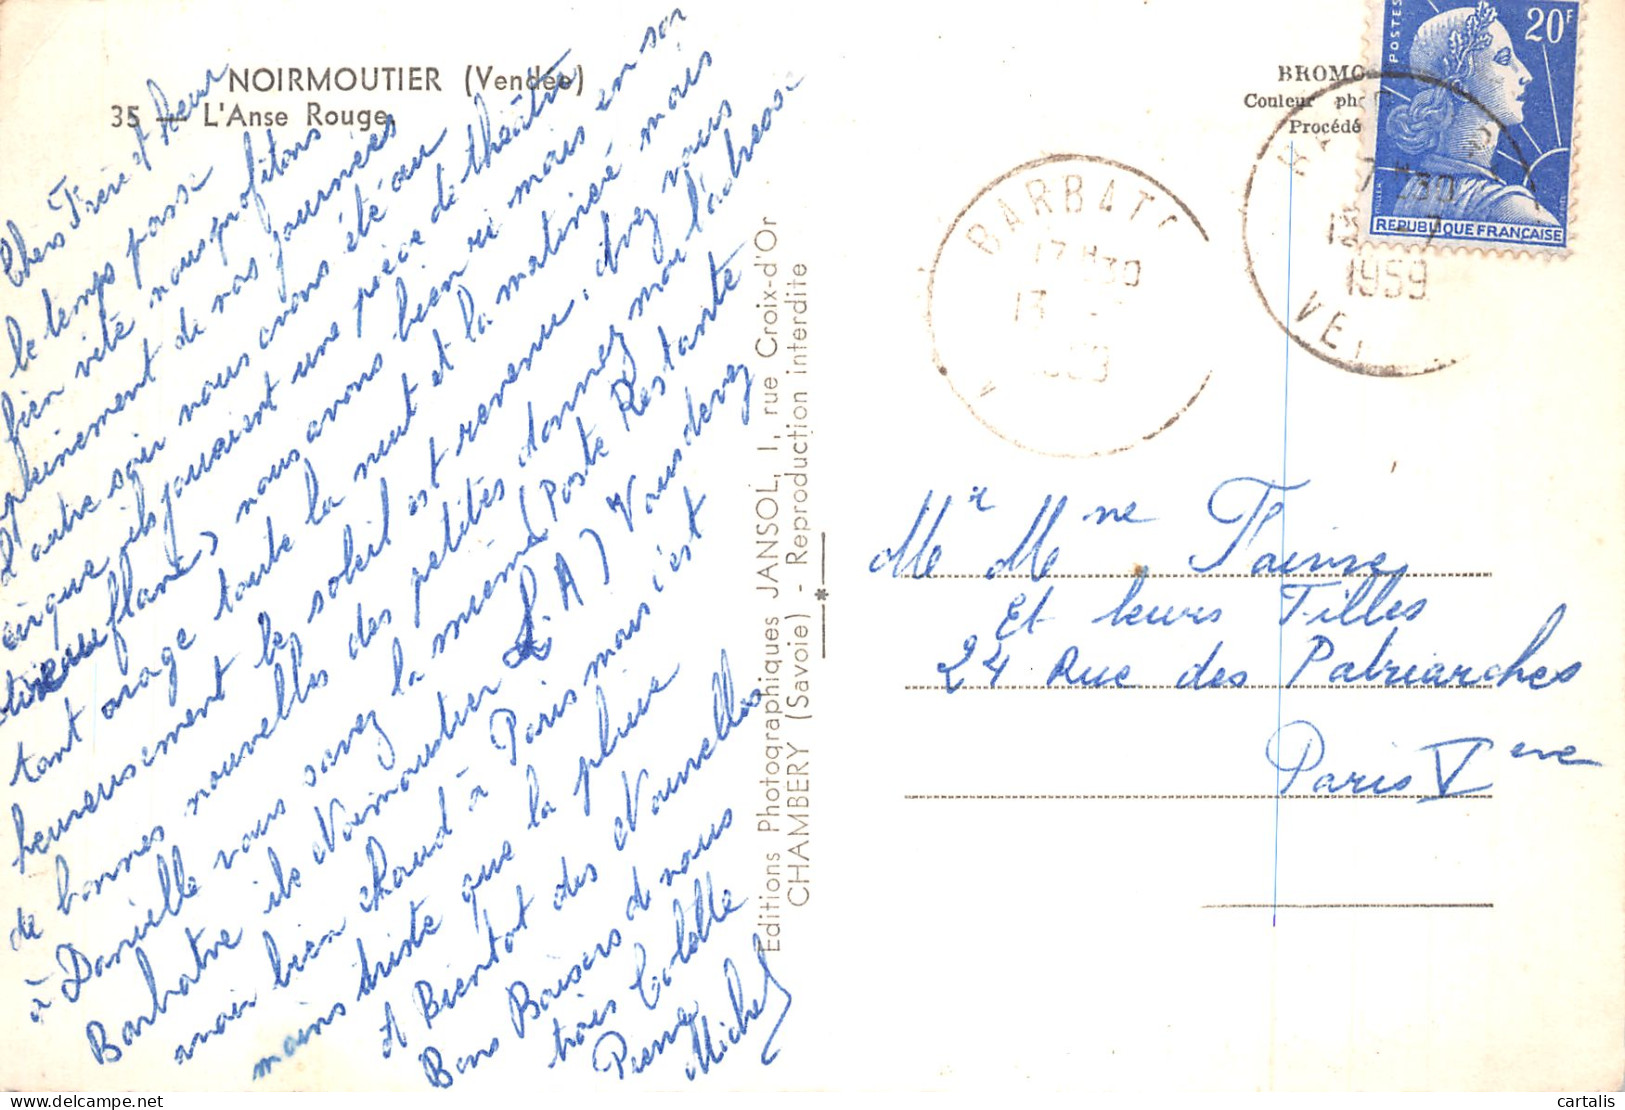 NOIRMOUTIER (Vendée)
35 — L'Anse Rouge.
Chers Frère et sœur
le temps passe
bien vite nous profitons
pleinement de nos journées
L'autre soir nous avons été au
cirque ils jouaient une pièce de théâtre
nous avons bien ri mais en soi
tant orage toute la nuit et la matinée mais
heureusement le soleil est revenu. Avez vous
de bonnes nouvelles des petites donnez moi l'adresse
à Danielle vous savez la mienne (Poste Restante
Barbatre ile Noirmoutier L. A) Vous devez
avoir bien chaud à Paris mais c'est
moins triste que la pluie
A Bientot des Nouvelles
Bons Baisers de nous
trois Colette
Pierre
Michel
Editions Photographiques JANSOL, 1, rue Croix-d'Or
CHAMBERY (Savoie) - Reproduction interdite
BROMO
Couleur pho
Procédé
POSTES
20F
REPUBLIQUE FRANÇAISE
BARBAT
17 H30
13
7 H30
13 -7
1959
VE
Mr Mme
Et leurs Filles
24 Rue des Patriarches
Paris Veme
cartalis